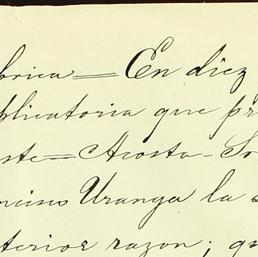 brica = En diez
plicatoria que pr
ste = Acosta - Sr
ncisco Uranga la s
terior razon; qu